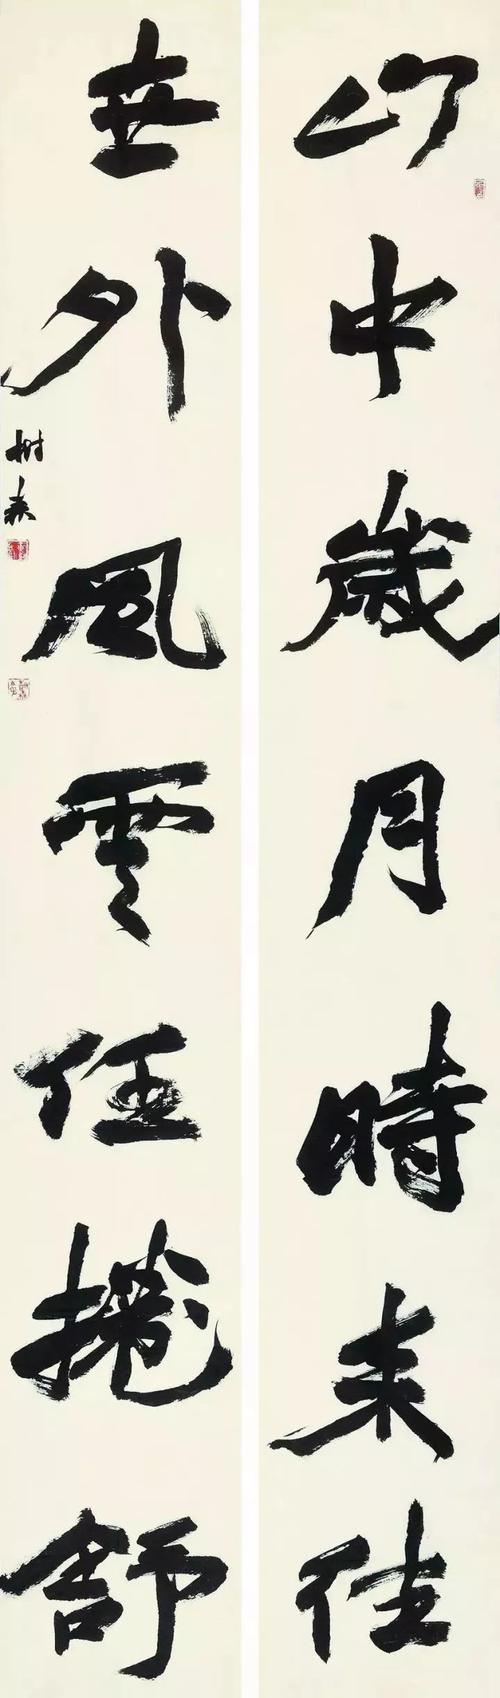 山中歲月時来往
世外風雲任捲舒
樹森